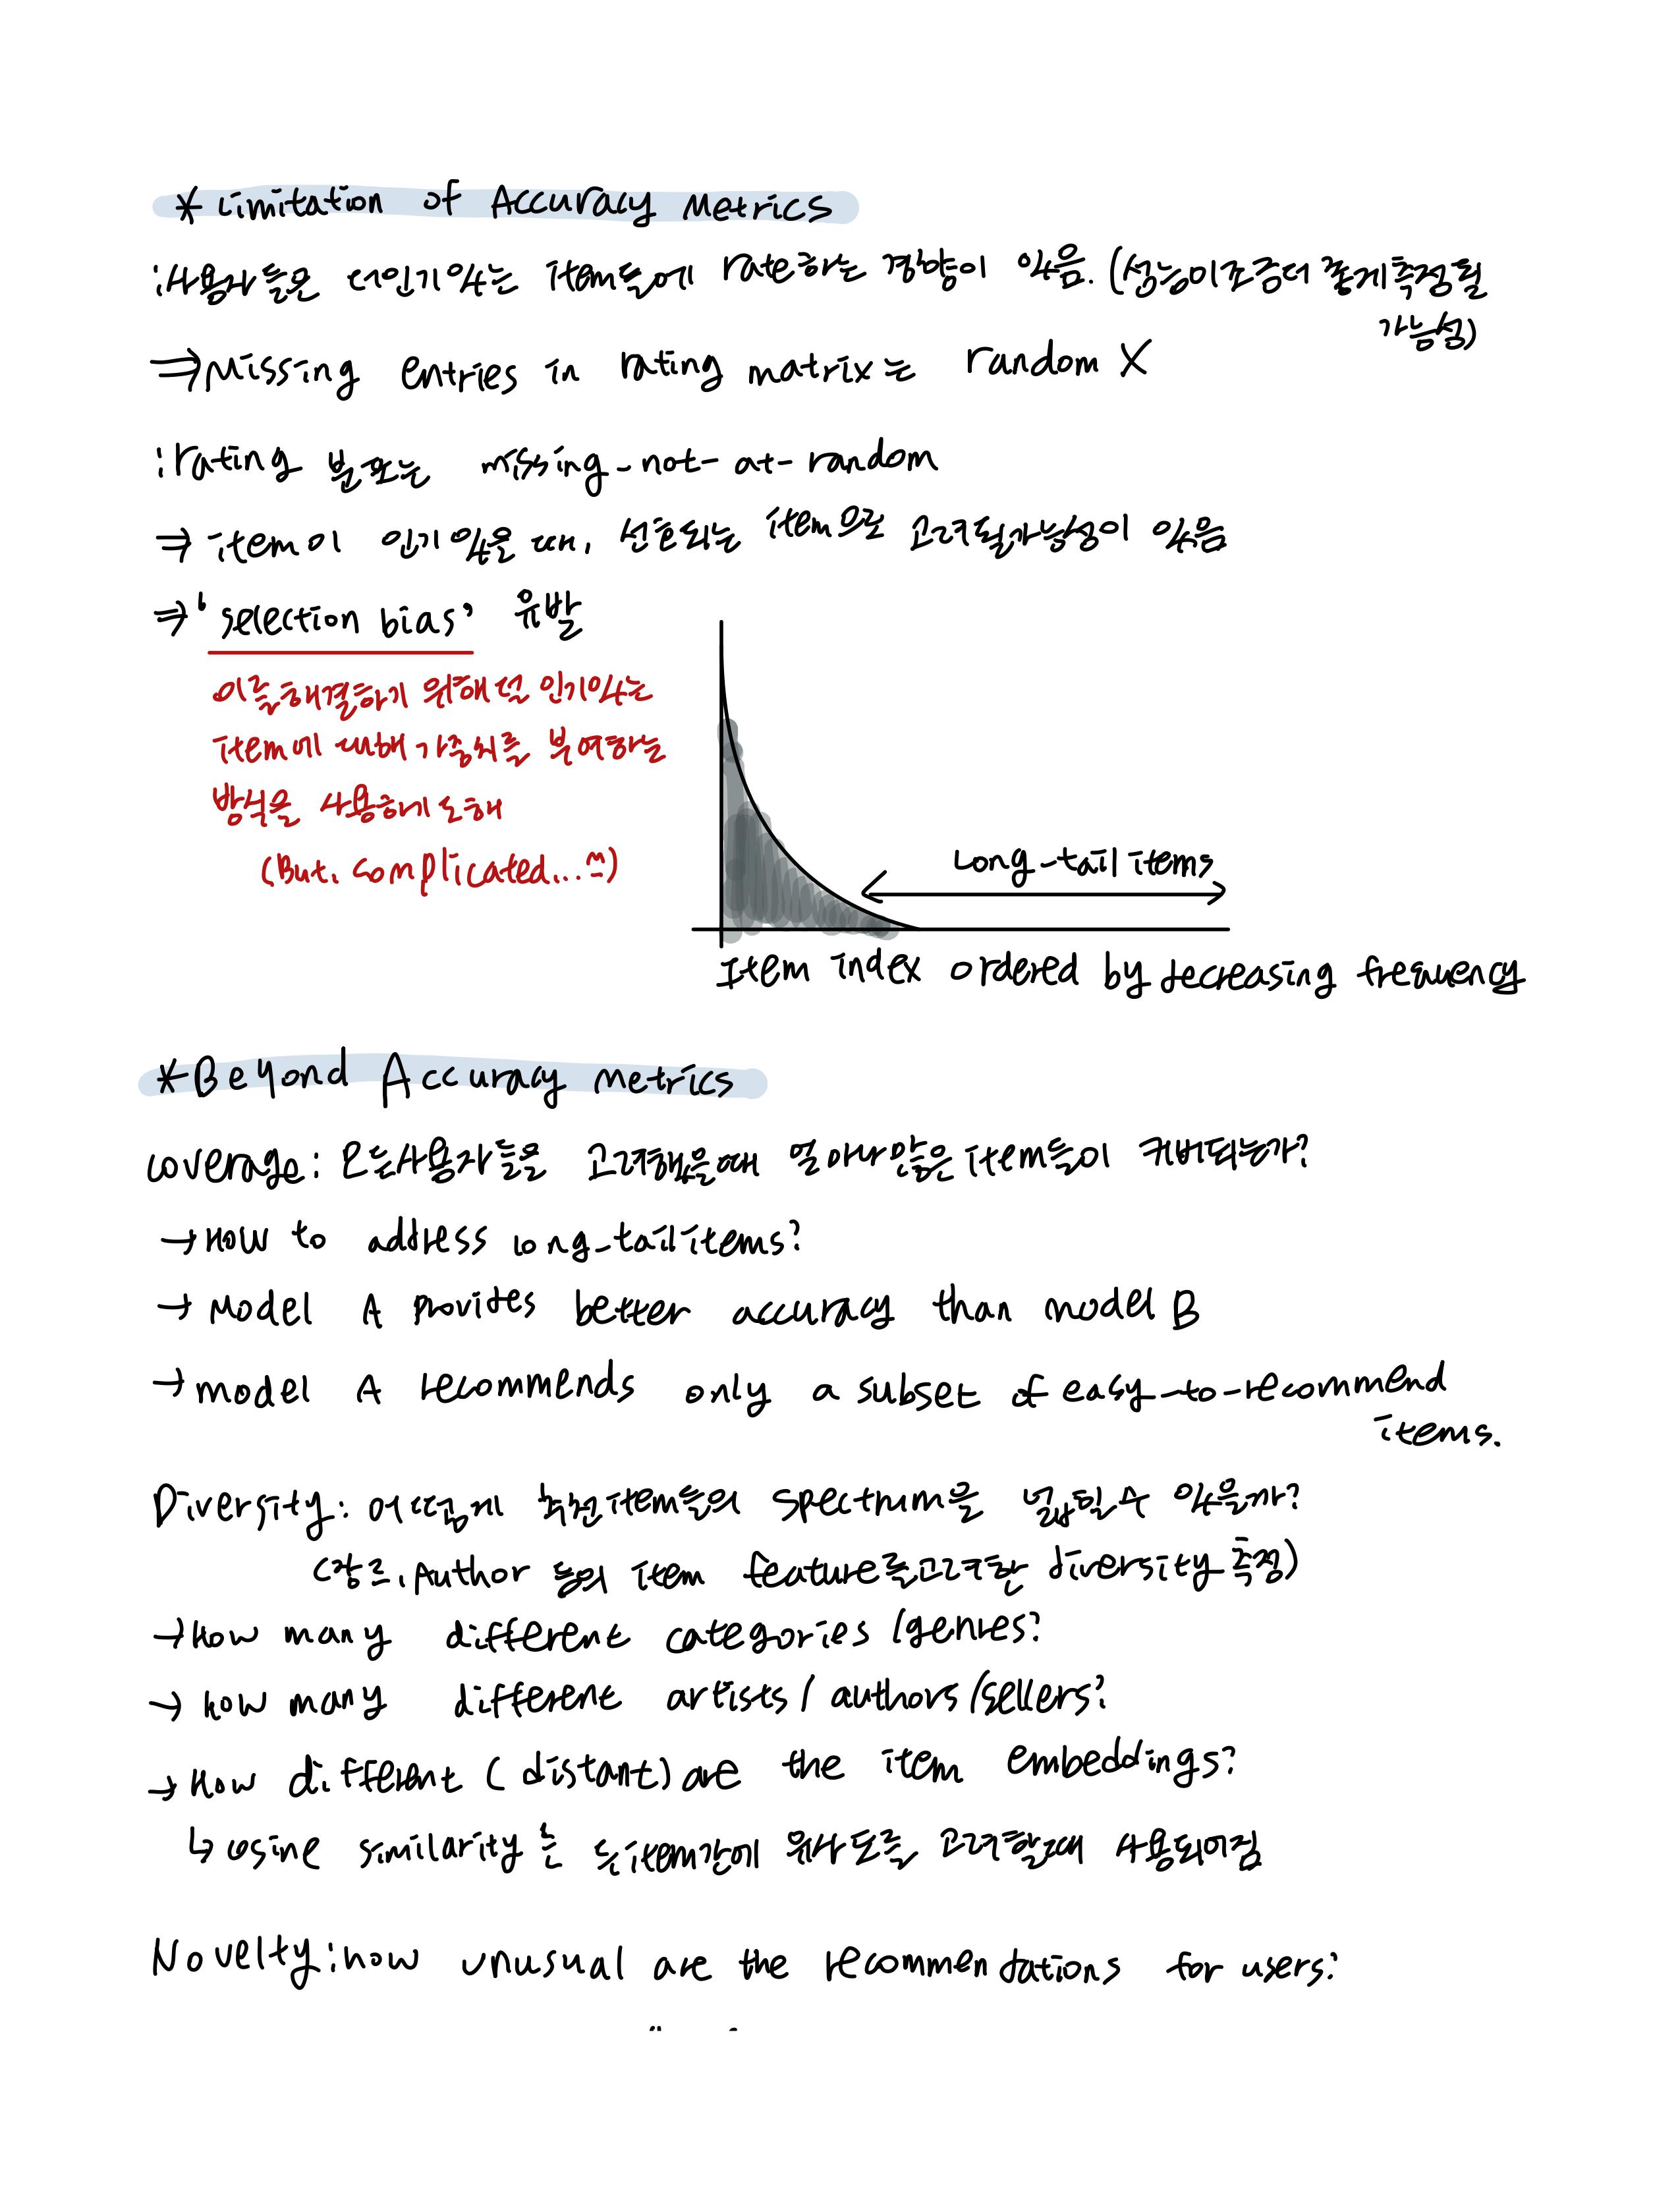 * Limitation of Accuracy Metrics
: 사용자들은 더 인기있는 item들에 rate하는 경향이 있음. (성능이 조금 더 좋게 측정될
가능성)
⇒ Missing entries in rating matrix는 random X
: rating 분포는 missing-not-at-random
⇒ item이 인기있을 때, 선호되는 item으로 고려될 가능성이 있음
⇒ 'selection bias' 유발
이를 해결하기 위해선 인기있는
item에 대해 가중치를 부여하는
방식을 사용하기도 해
(But, complicated...^^)
Long-tail items
Item index ordered by decreasing frequency
* Beyond Accuracy metrics
coverage : 모든 사용자들을 고려했을 때 얼마나 많은 item들이 커버되는가?
→ How to address long-tail items?
→ Model A provides better accuracy than model B
→ model A recommends only a subset of easy-to-recommend
items.
Diversity : 어떻게 추천 item들의 spectrum을 넓힐 수 있을까?
(장르, Author 등의 item feature를 고려한 diversity 측정)
→ How many different categories / genres?
→ How many different artists / authors / sellers?
→ How different (distant) are the item embeddings?
↳ cosine similarity는 두 item간에 유사도를 고려할 때 사용되어짐
Novelty : how unusual are the recommendations for users?